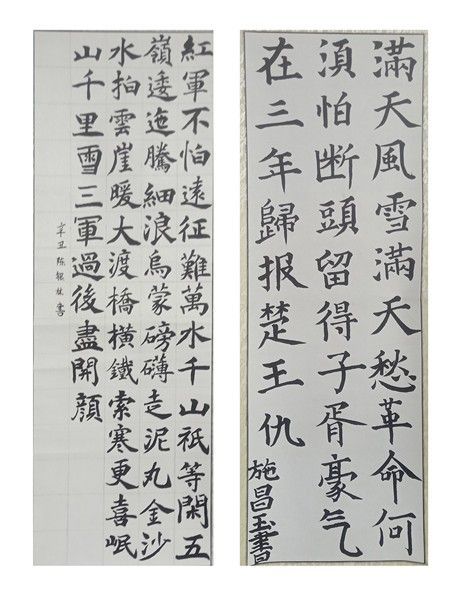 紅軍不怕遠征難萬水千山祇等閑五
嶺逶迤騰細浪烏蒙磅礴走泥丸金沙
水拍雲崖暖大渡橋橫鐵索寒更喜岷
山千里雪三軍過後盡開顏
辛丑 陈 書
滿天風雪滿天愁革命何
湏怕断頭留得子胥豪气
在三年歸报楚王仇
施昌玉書